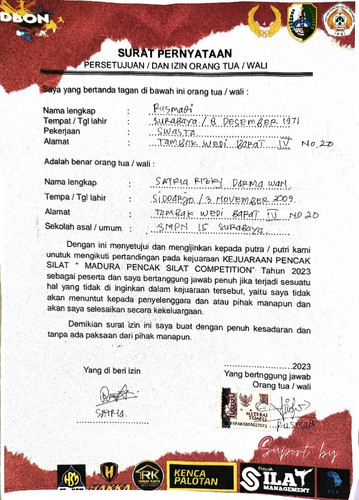 DBON
SURAT PERNYATAAN
PERSETUJUAN / DAN IZIN ORANG TUA / WALI
Saya yang bertanda tagan di bawah ini orang tua / wali :
Nama lengkap : Rusmadi
Tempat / Tgl lahir : SURABAYA / 8 DESEMBER 1971
Pekerjaan : SWASTA
Alamat : TAMBAK WEDI BARAT IV NO. 20
Adalah benar orang tua / wali :
Nama lengkap : SATRIA RIZKY DARMAWAN
Tempa / Tgl lahir : SIDOARJO / 3 NOVEMBER 2009
Alamat : TAMBAK WEDI BARAT IV NO 20
Sekolah asal / umum : SMPN 15 SURABAYA
Dengan ini menyetujui dan mengijinkan kepada putra / putri kami
unutuk mengikuti pertandingan pada kejuaraan KEJUARAAN PENCAK
SILAT " MADURA PENCAK SILAT COMPETITION" Tahun 2023
sebagai peserta dan saya bertanggung jawab penuh jika terjadi sesuatu
hal yang tidak di inginkan dalam kejuaraan tersebut, yaitu saya tidak
akan menuntut kepada penyelenggara dan atau pihak manapun dan
akan saya selesaikan secara kekeluargaan.
Demikian surat izin ini saya buat dengan penuh kesadaran dan
tanpa ada paksaan dari pihak manapun.
..................2023
Yang di beri izin
Yang bertnggung jawab
Orang tua / wali
METERAI
TEMPEL
SATRIA
Rusmadi
Suport by
HBM
HAKKA
RK
KENCA
PALOTAN
Pencak
SILAT
MANAGEMENT